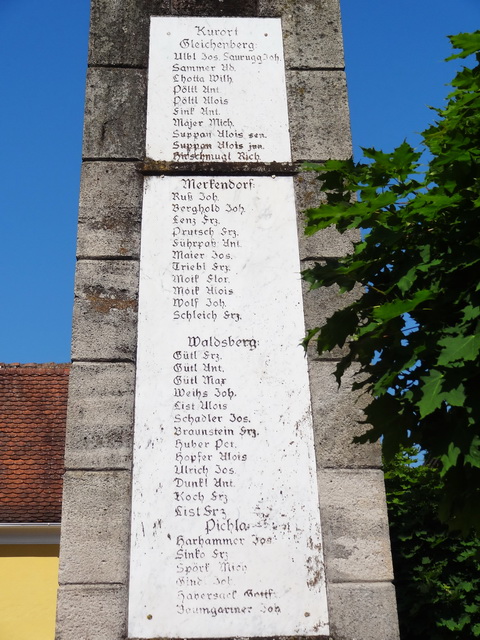 Kurort
Gleichenberg:
Ulbl Jos. Saurugg Joh.
Sammer Ad.
Lhotta Wilh.
Pöltl Ant.
Pöltl Alois
Fink Ant.
Majer Mich.
Suppan Alois sen.
Suppan Alois jun.
Hirschmugl Rich.
Merkendorf:
Ruß Joh.
Berghold Joh.
Lenz Frz.
Prutsch Frz.
Fuhrpaß Ant.
Maier Jos.
Triebl Frz.
Moik Flor.
Moik Alois
Wolf Joh.
Schleich Frz.
Waldsberg:
Gütl Frz.
Gütl Ant.
Gütl Max
Weihs Joh.
List Alois
Schadler Jos.
Braunstein Frz.
Huber Pet.
Hopfer Alois
Ulrich Jos.
Dunkl Ant.
Koch Frz
List Frz
Pichla
Harhammer Jos
Sinko Frz
Spörk Mich
Joh.
Habersack Gottfr.
Baumgartner Joh